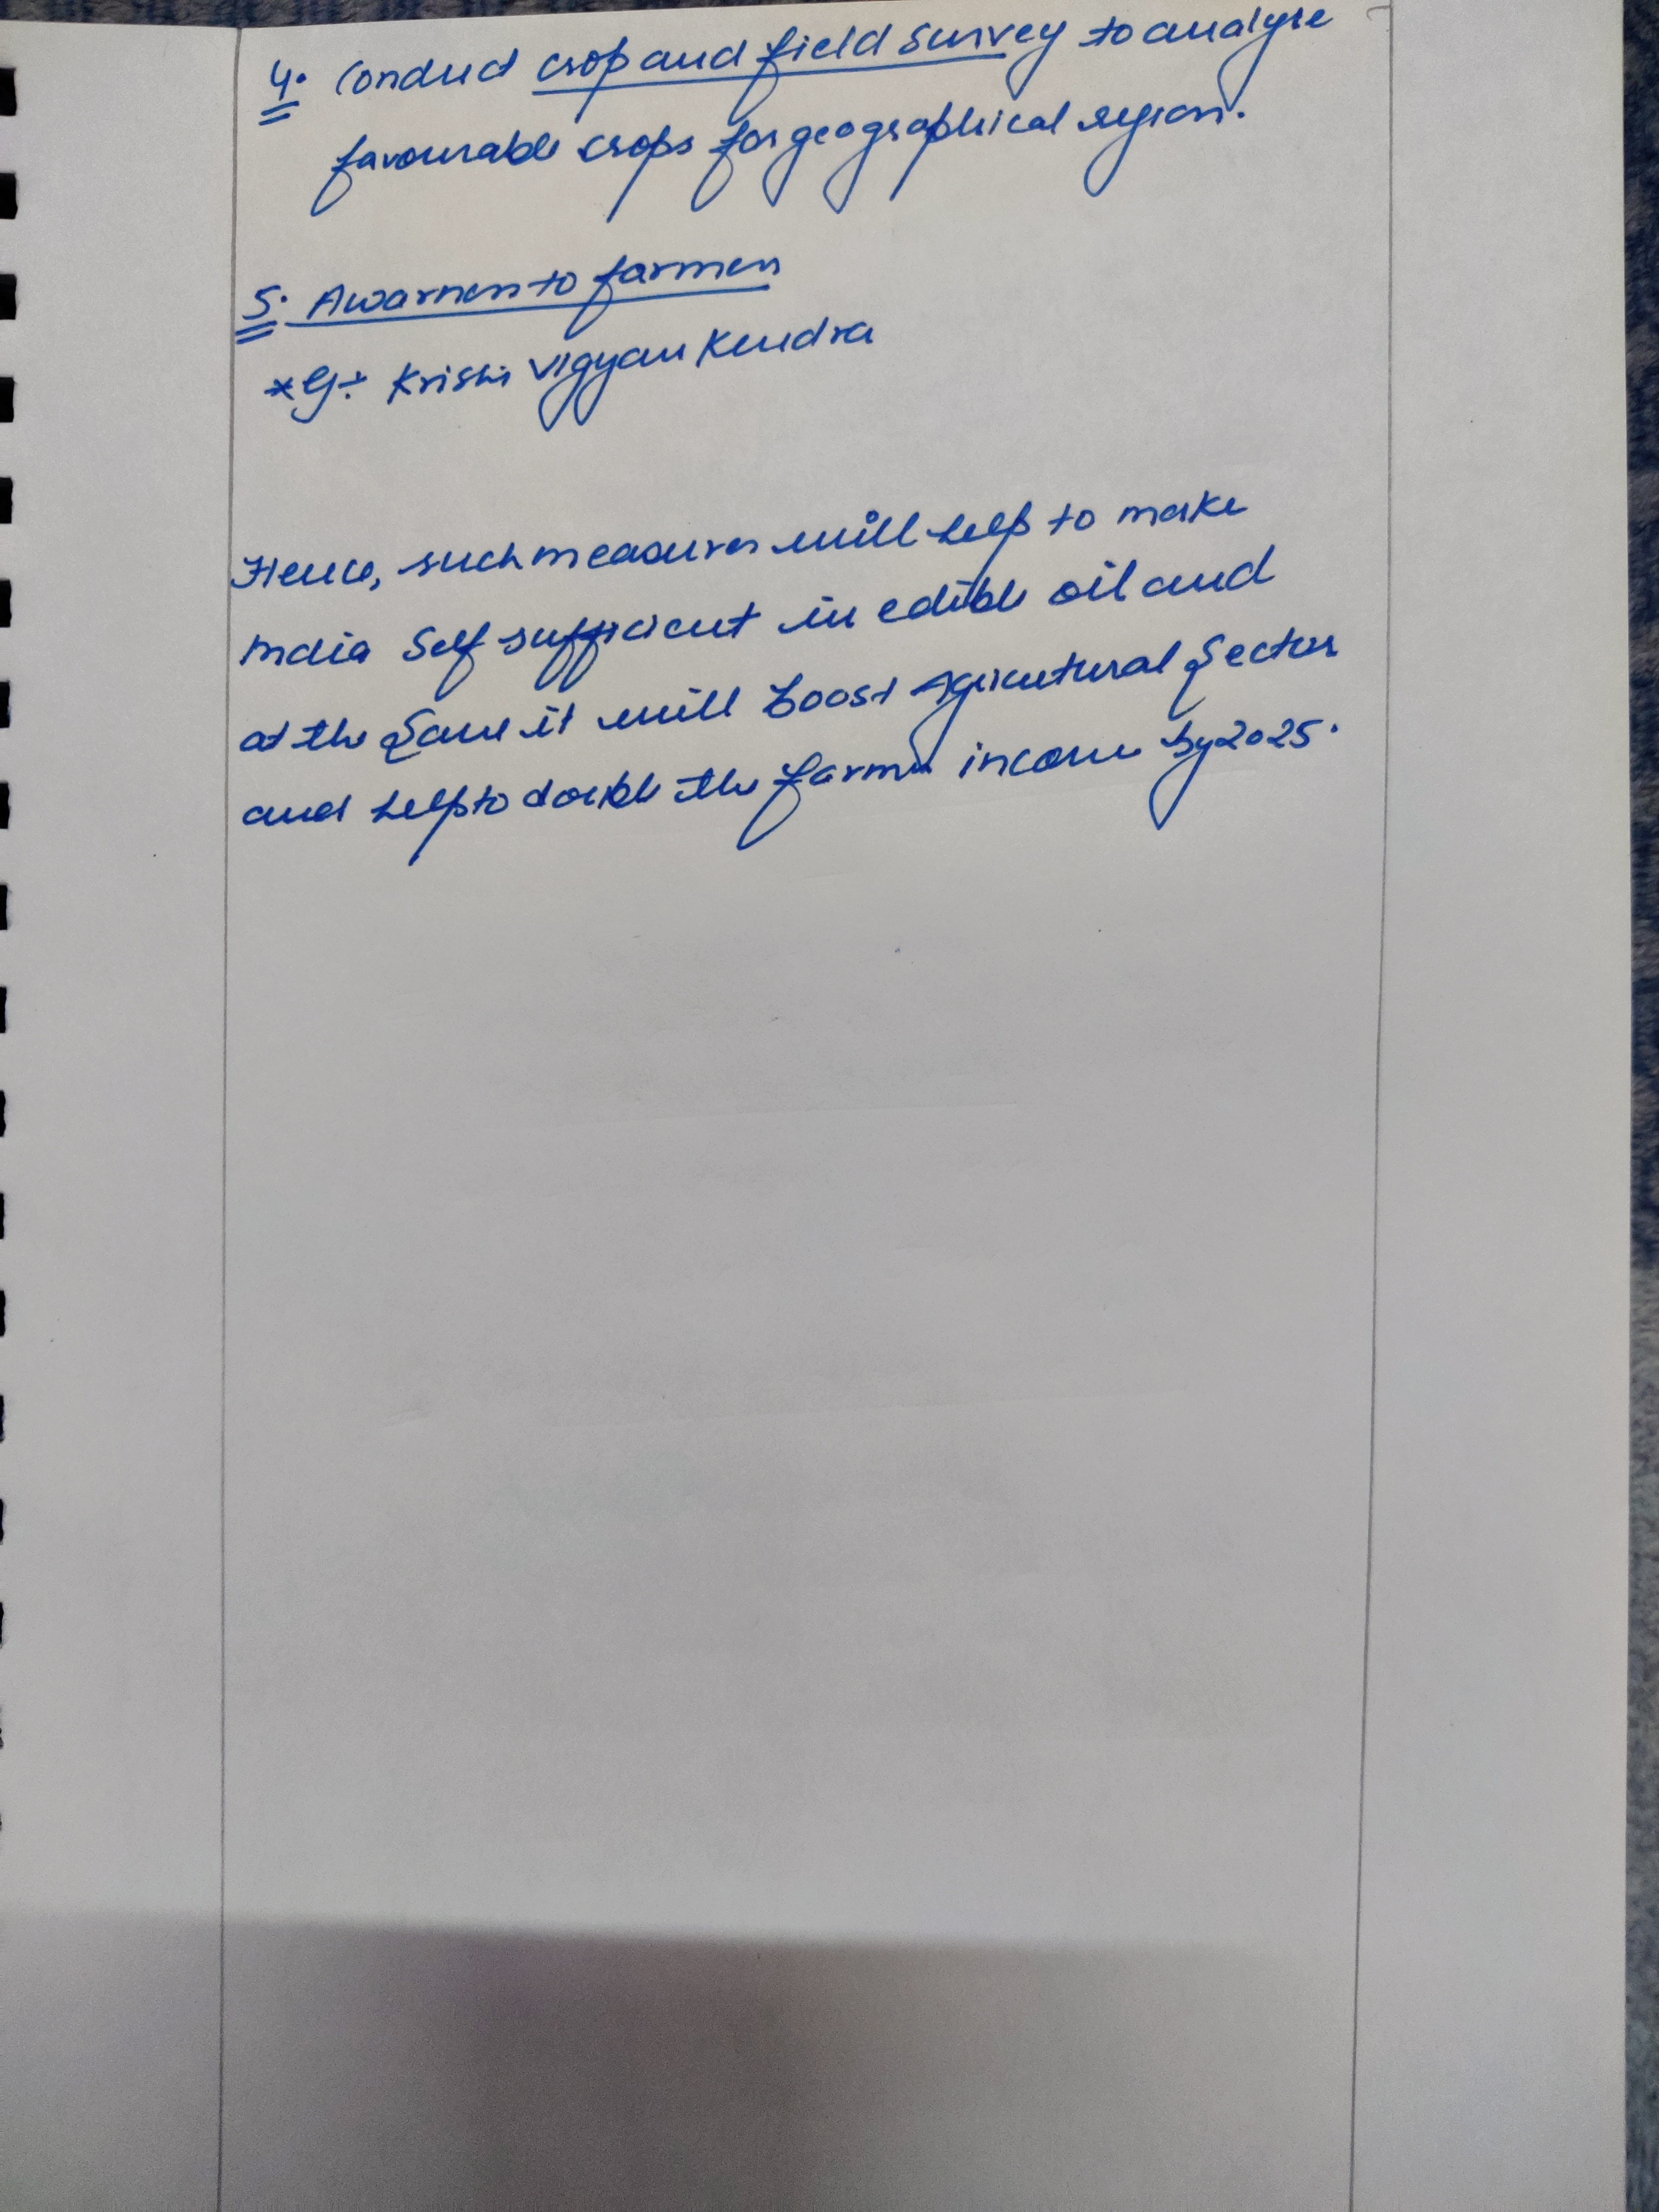 4. Conduct crop and field survey to analyse
favourable crops for geographical region.
5. Awarness to farmers
*eg:- Krishi Vigyan Kendra
Hence, such measures will help to make
India self sufficient in edible oil and
at the same it will boost Agricutural Sector
and help to double the farmer income by 2025.